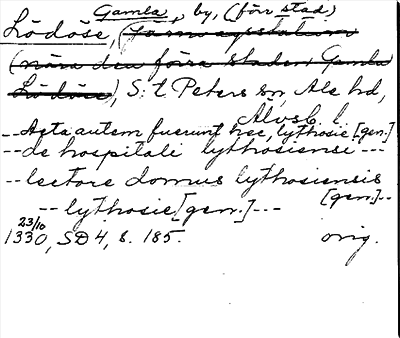 Gamla, by, (förr stad)
Lödöse, (järnvägsstation
(nära den förra staden Gamla
Lödöse), S:t Peters sn, Ale hd,
Älvsb. l.
-- Acta autem fuerunt hec, lythosie [gen.]
-- de hospitali lythosiensi ---
-- lectore domus lythosiensis [gen.] --
-- lythosie [gen.] ---
23/10
1330, SD 4, s. 185. orig.